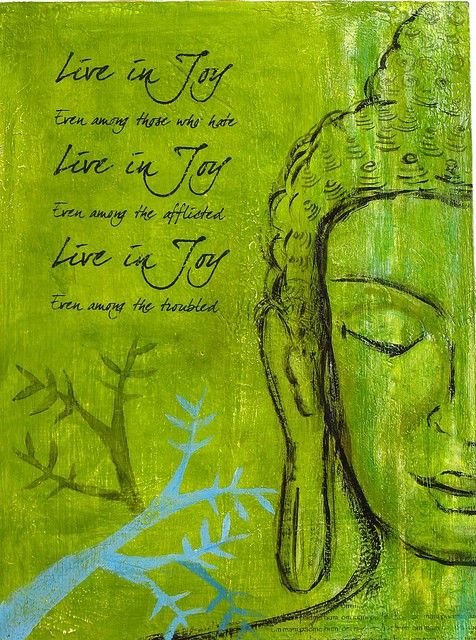 Live in Joy
Even among those who hate
Live in Joy
Even among the afflicted
Live in Joy
Even among the troubled